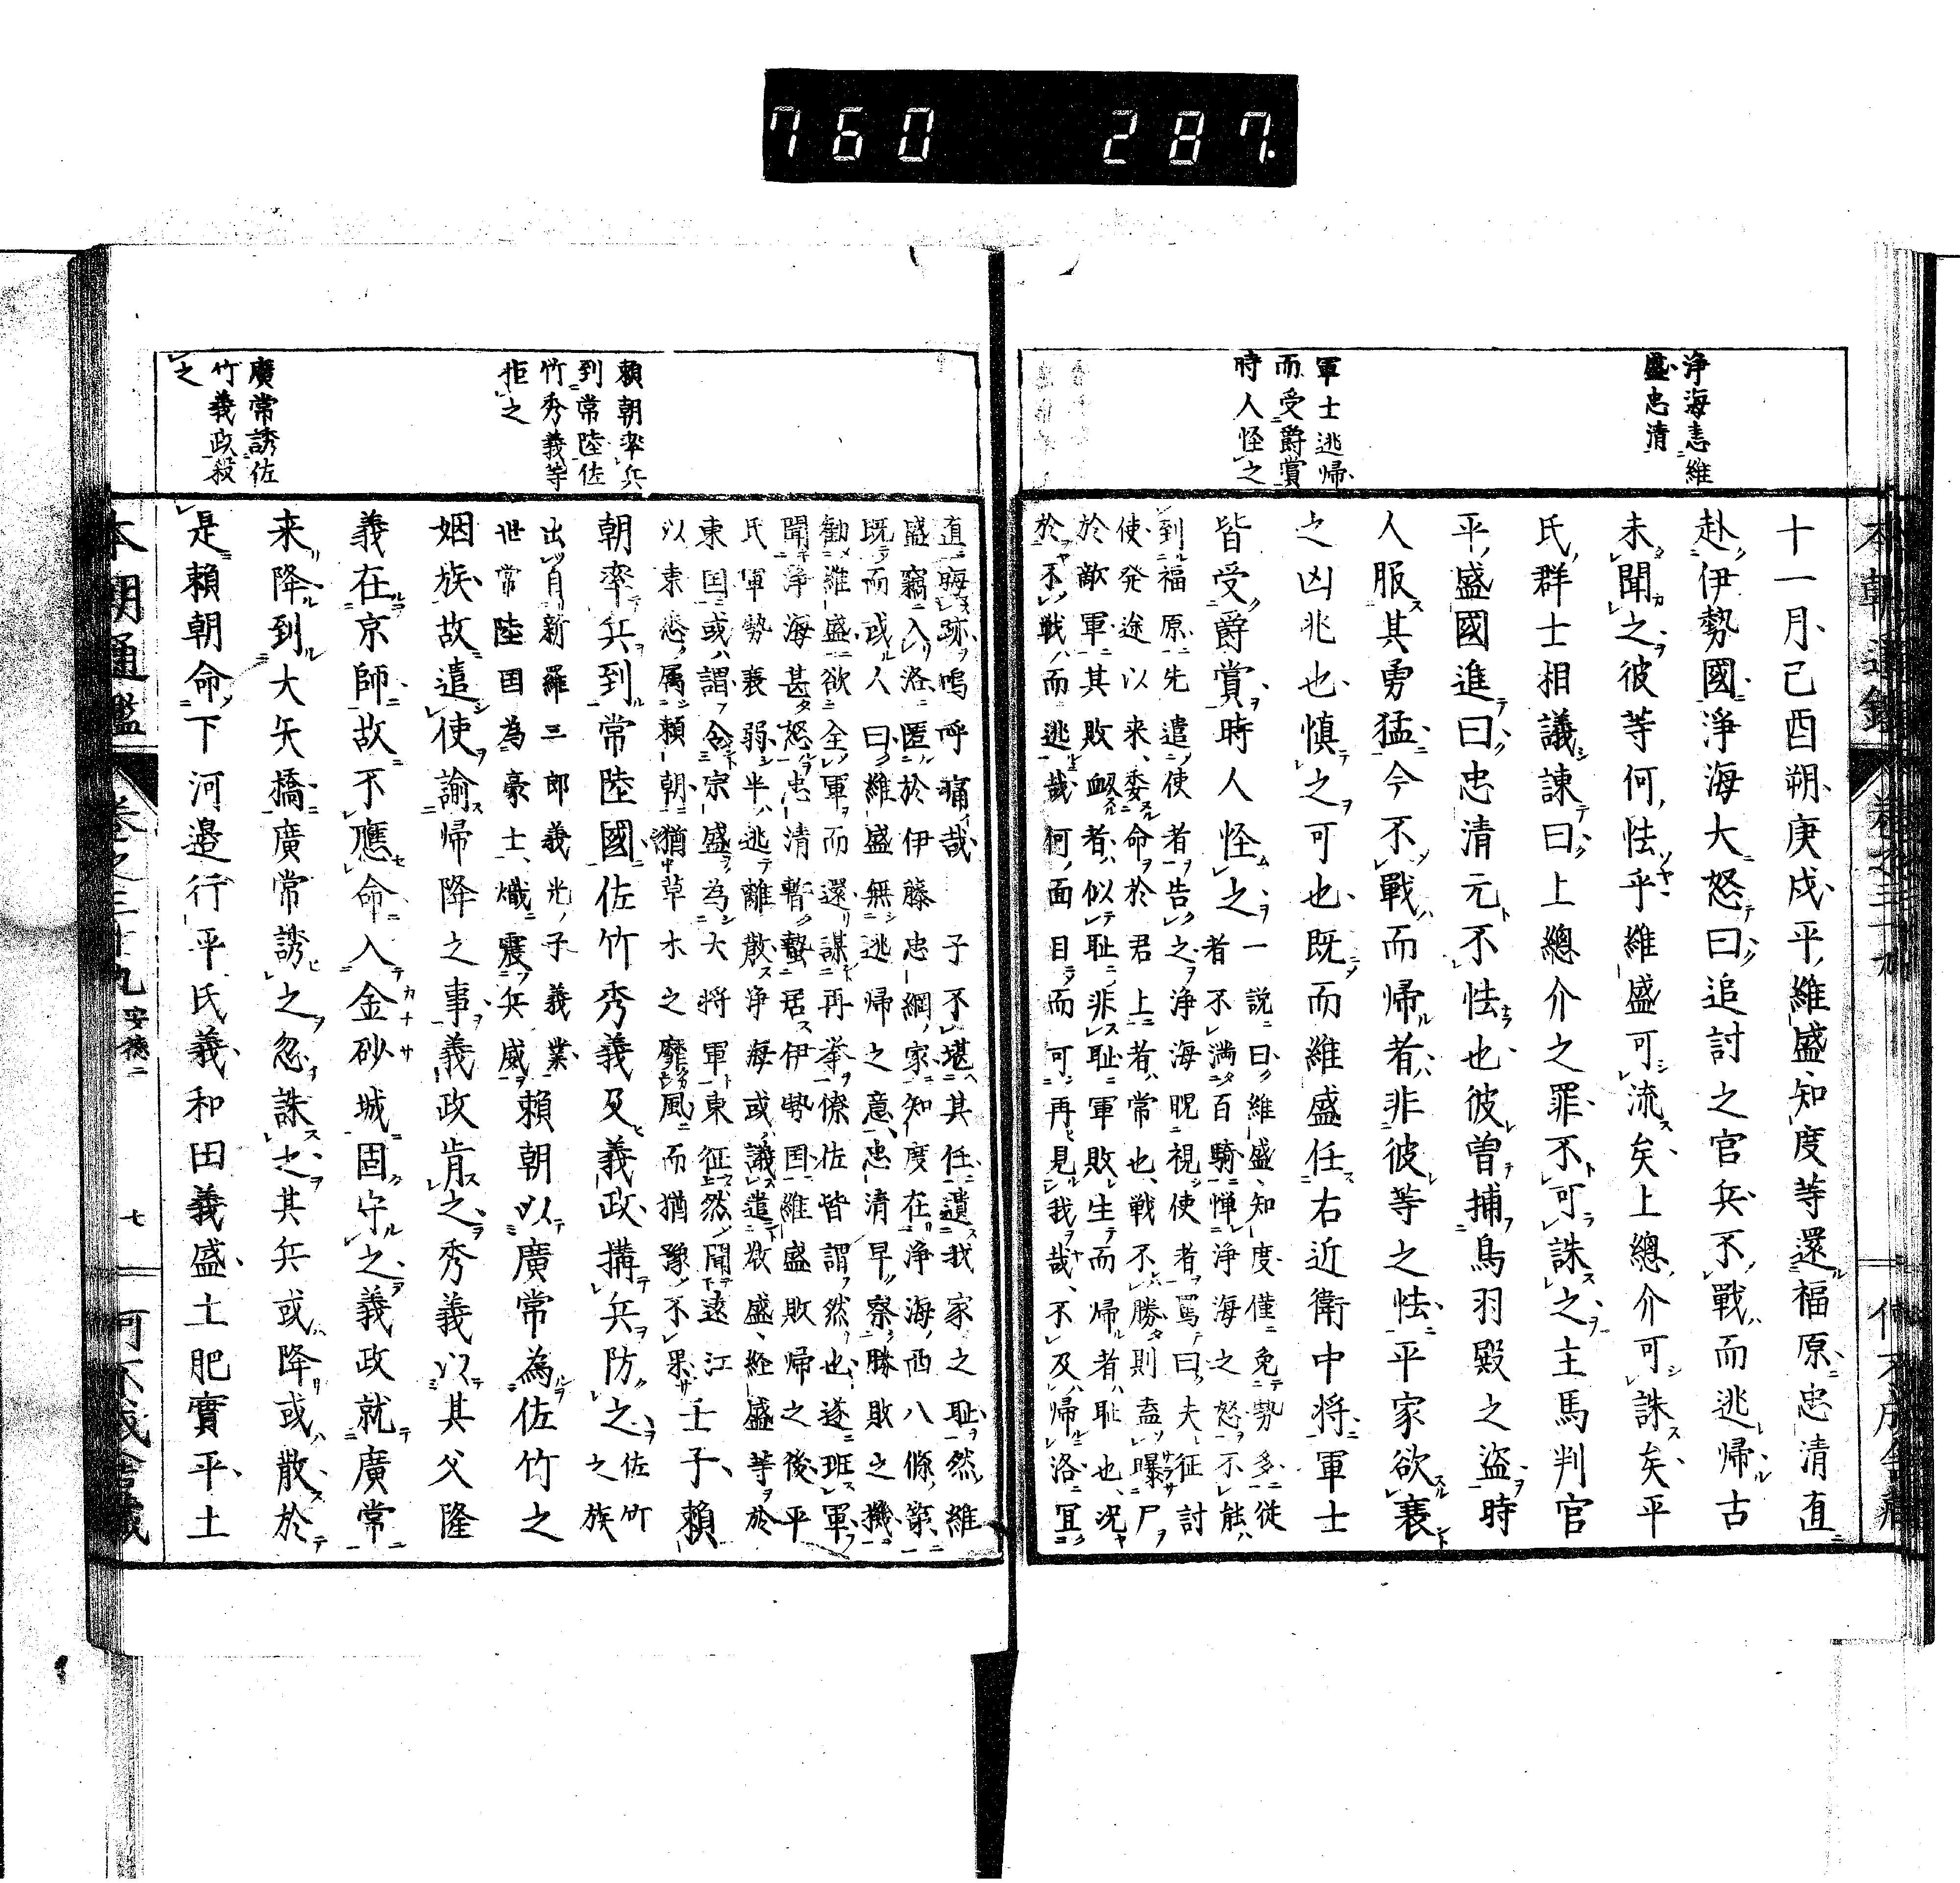 760 287.
浄海恚維
盛忠清
軍士逃帰
而受爵賞
時人怪之
十一月己酉朔庚戌平維盛知度等還福原忠清直
赴伊勢國浄海大怒曰追討之官兵不戰而逃帰古
未聞之彼等何怯乎維盛可流矣上總介可誅矣平
氏群士相議諌曰上總介之罪不可誅之主馬判官
平盛國進曰忠清元不怯也彼曽捕鳥羽殿之盗時
人服其勇猛今不戰而帰者非彼等之怯平家欲衰
之凶兆也慎之可也既而維盛任右近衛中将軍士
皆受爵賞時人怪之
一説曰維盛知度僅免勢多従
者不満百騎憚浄海之怒不能
到福原先遣使者告之浄海睨視使者罵曰夫征討
使発途以来委命於君上者常也戦不勝則盍曝尸
於敵軍其敗衂者似耻非耻軍敗生而帰者耻也况
於不戦而逃哉何面目而可再見我哉不及帰洛冝
直晦跡嗚呼痛哉
子不堪其任遺我家之耻然維
盛竊入洛匿於伊藤忠綱家知度在浄海西八條第
既而或人曰維盛無逃帰之意忠清早察勝敗之機
勧維盛欲全軍而還謀再挙僚佐皆謂然也遂班軍
聞浄海甚怒忠清暫蟄居伊勢国維盛敗帰之後平
氏軍勢衰弱半逃離散浄海或議遣教盛経盛等於
東国或謂令宗盛為大将軍東征然聞遠江
以東悉属頼朝猶草木之靡風而猶豫不果
壬子頼
朝率兵到常陸國佐竹秀義及義政搆兵防之
佐竹
之族
出自新羅三郎義光子義業
世常陸国為豪士熾震兵威
頼朝以廣常為佐竹之
姻族故遣使諭帰降之事義政肯之秀義以其父隆
義在京師故不應命入金砂城固守之義政就廣常
来降到大矢橋廣常誘之忽誅之其兵或降或散於
是頼朝命下河邉行平氏義和田義盛土肥實平土
頼朝率兵
到常陸佐
竹秀義等
拒之
廣常誘佐
竹義政殺
之
本朝通鑑 卷之三十九 安徳二 七